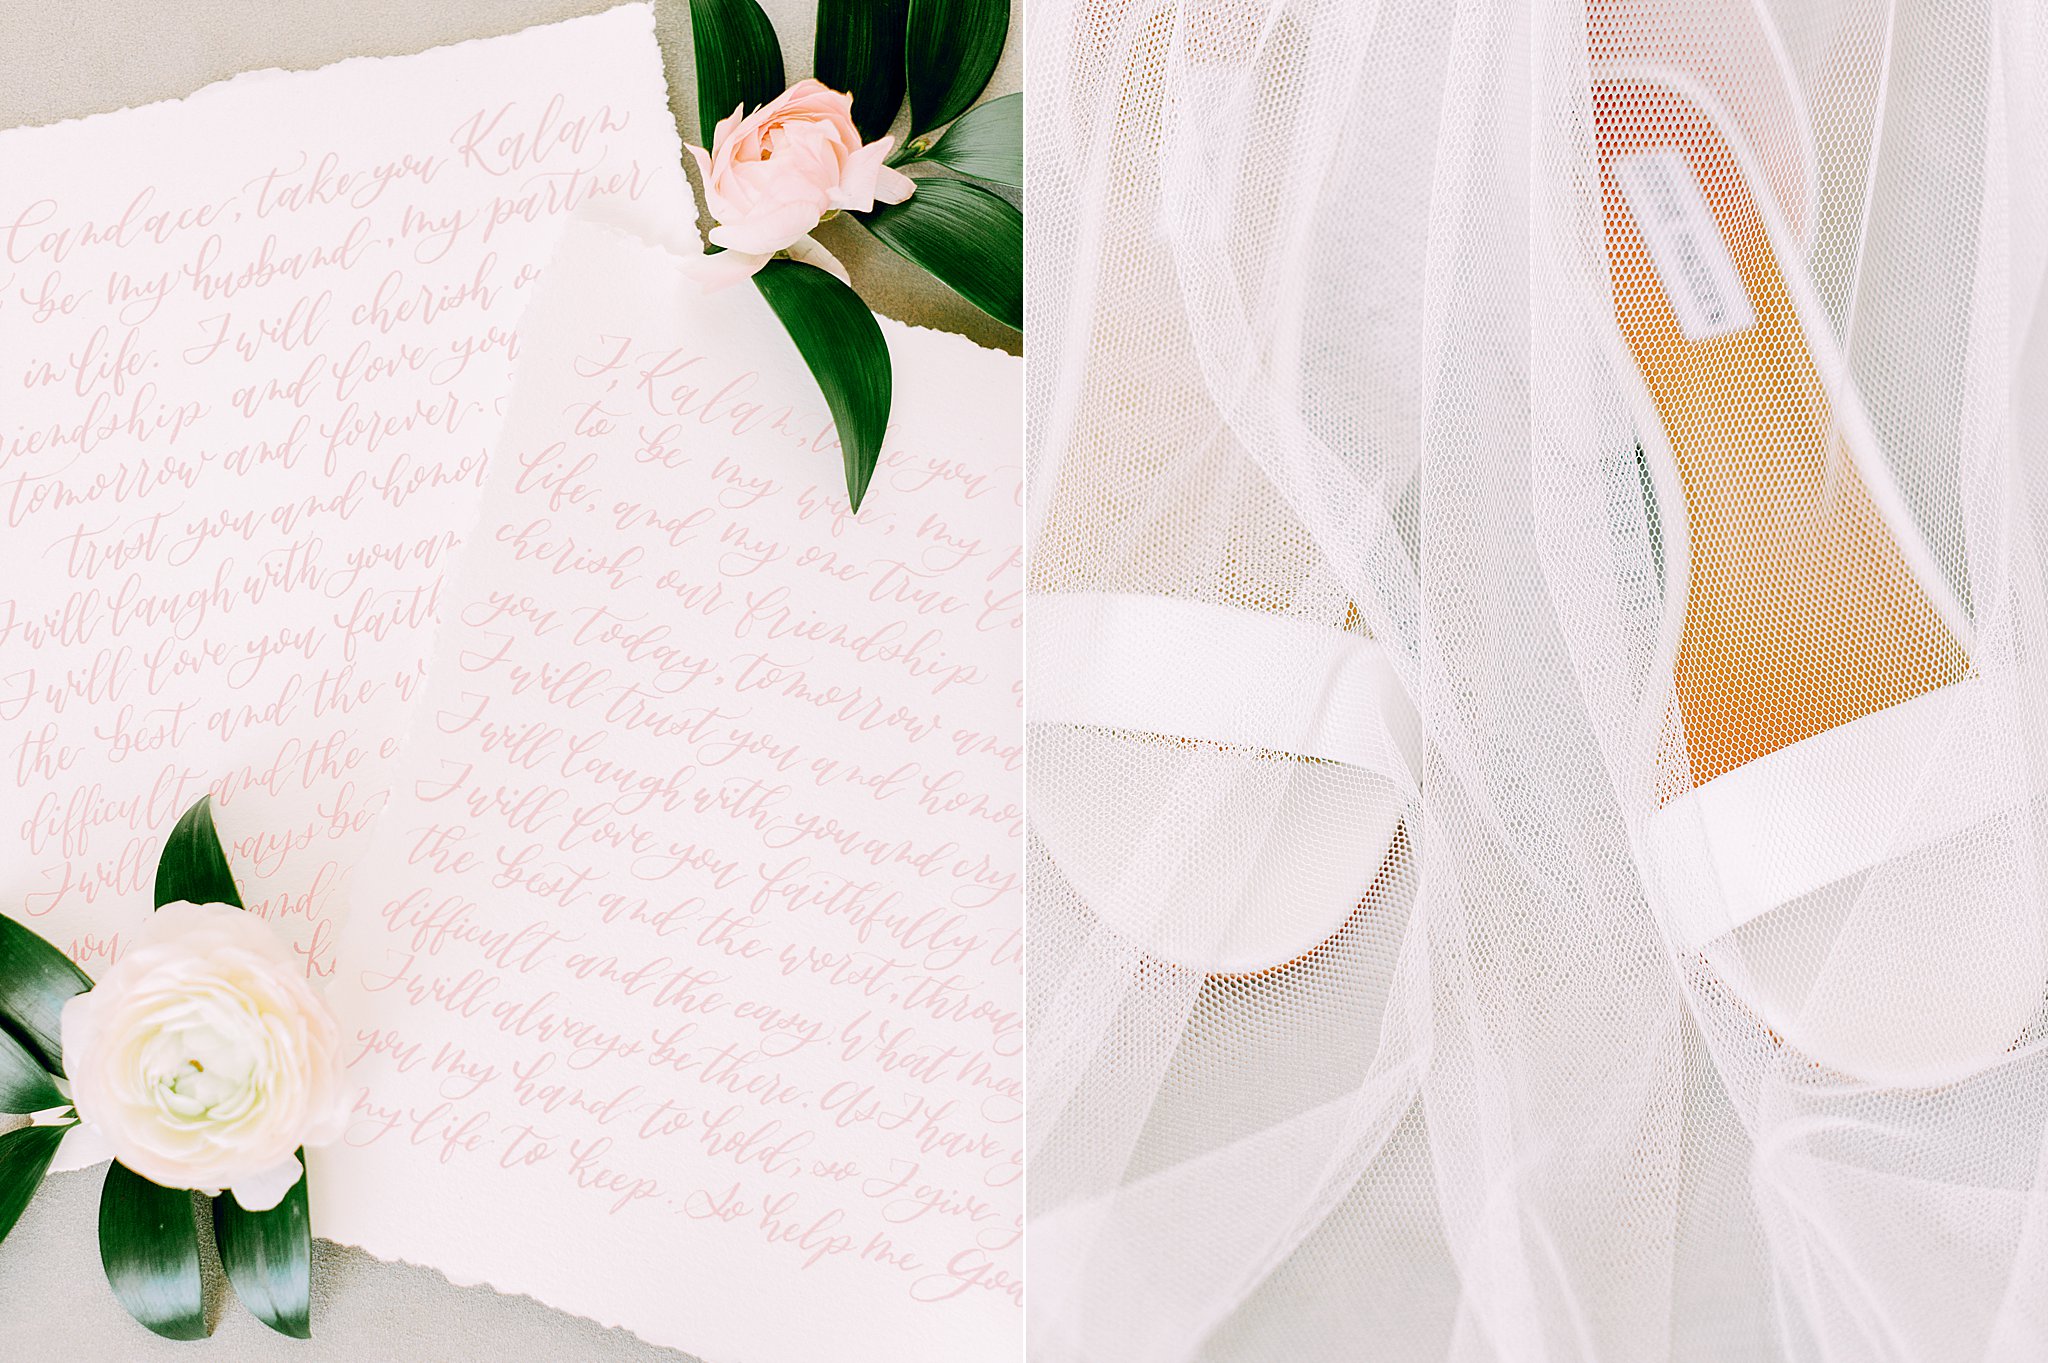 Candace, take you Kalan
be my husband, my partner
in life. I will cherish
and love you
tomorrow and forever.
trust you and honor
I will laugh with you
I will love you
the best and the
difficult and the
I will be
you and
I, Kalan, you
to be my wife, my
life, and my one true
cherish our friendship
you today, tomorrow and
I will trust you and honor
I will laugh with you and cry
I will love you faithfully
the best and the worst, through
difficult and the easy. What may
I will always be there. As I have
you my hand to hold, so I give
my life to keep. So help me God